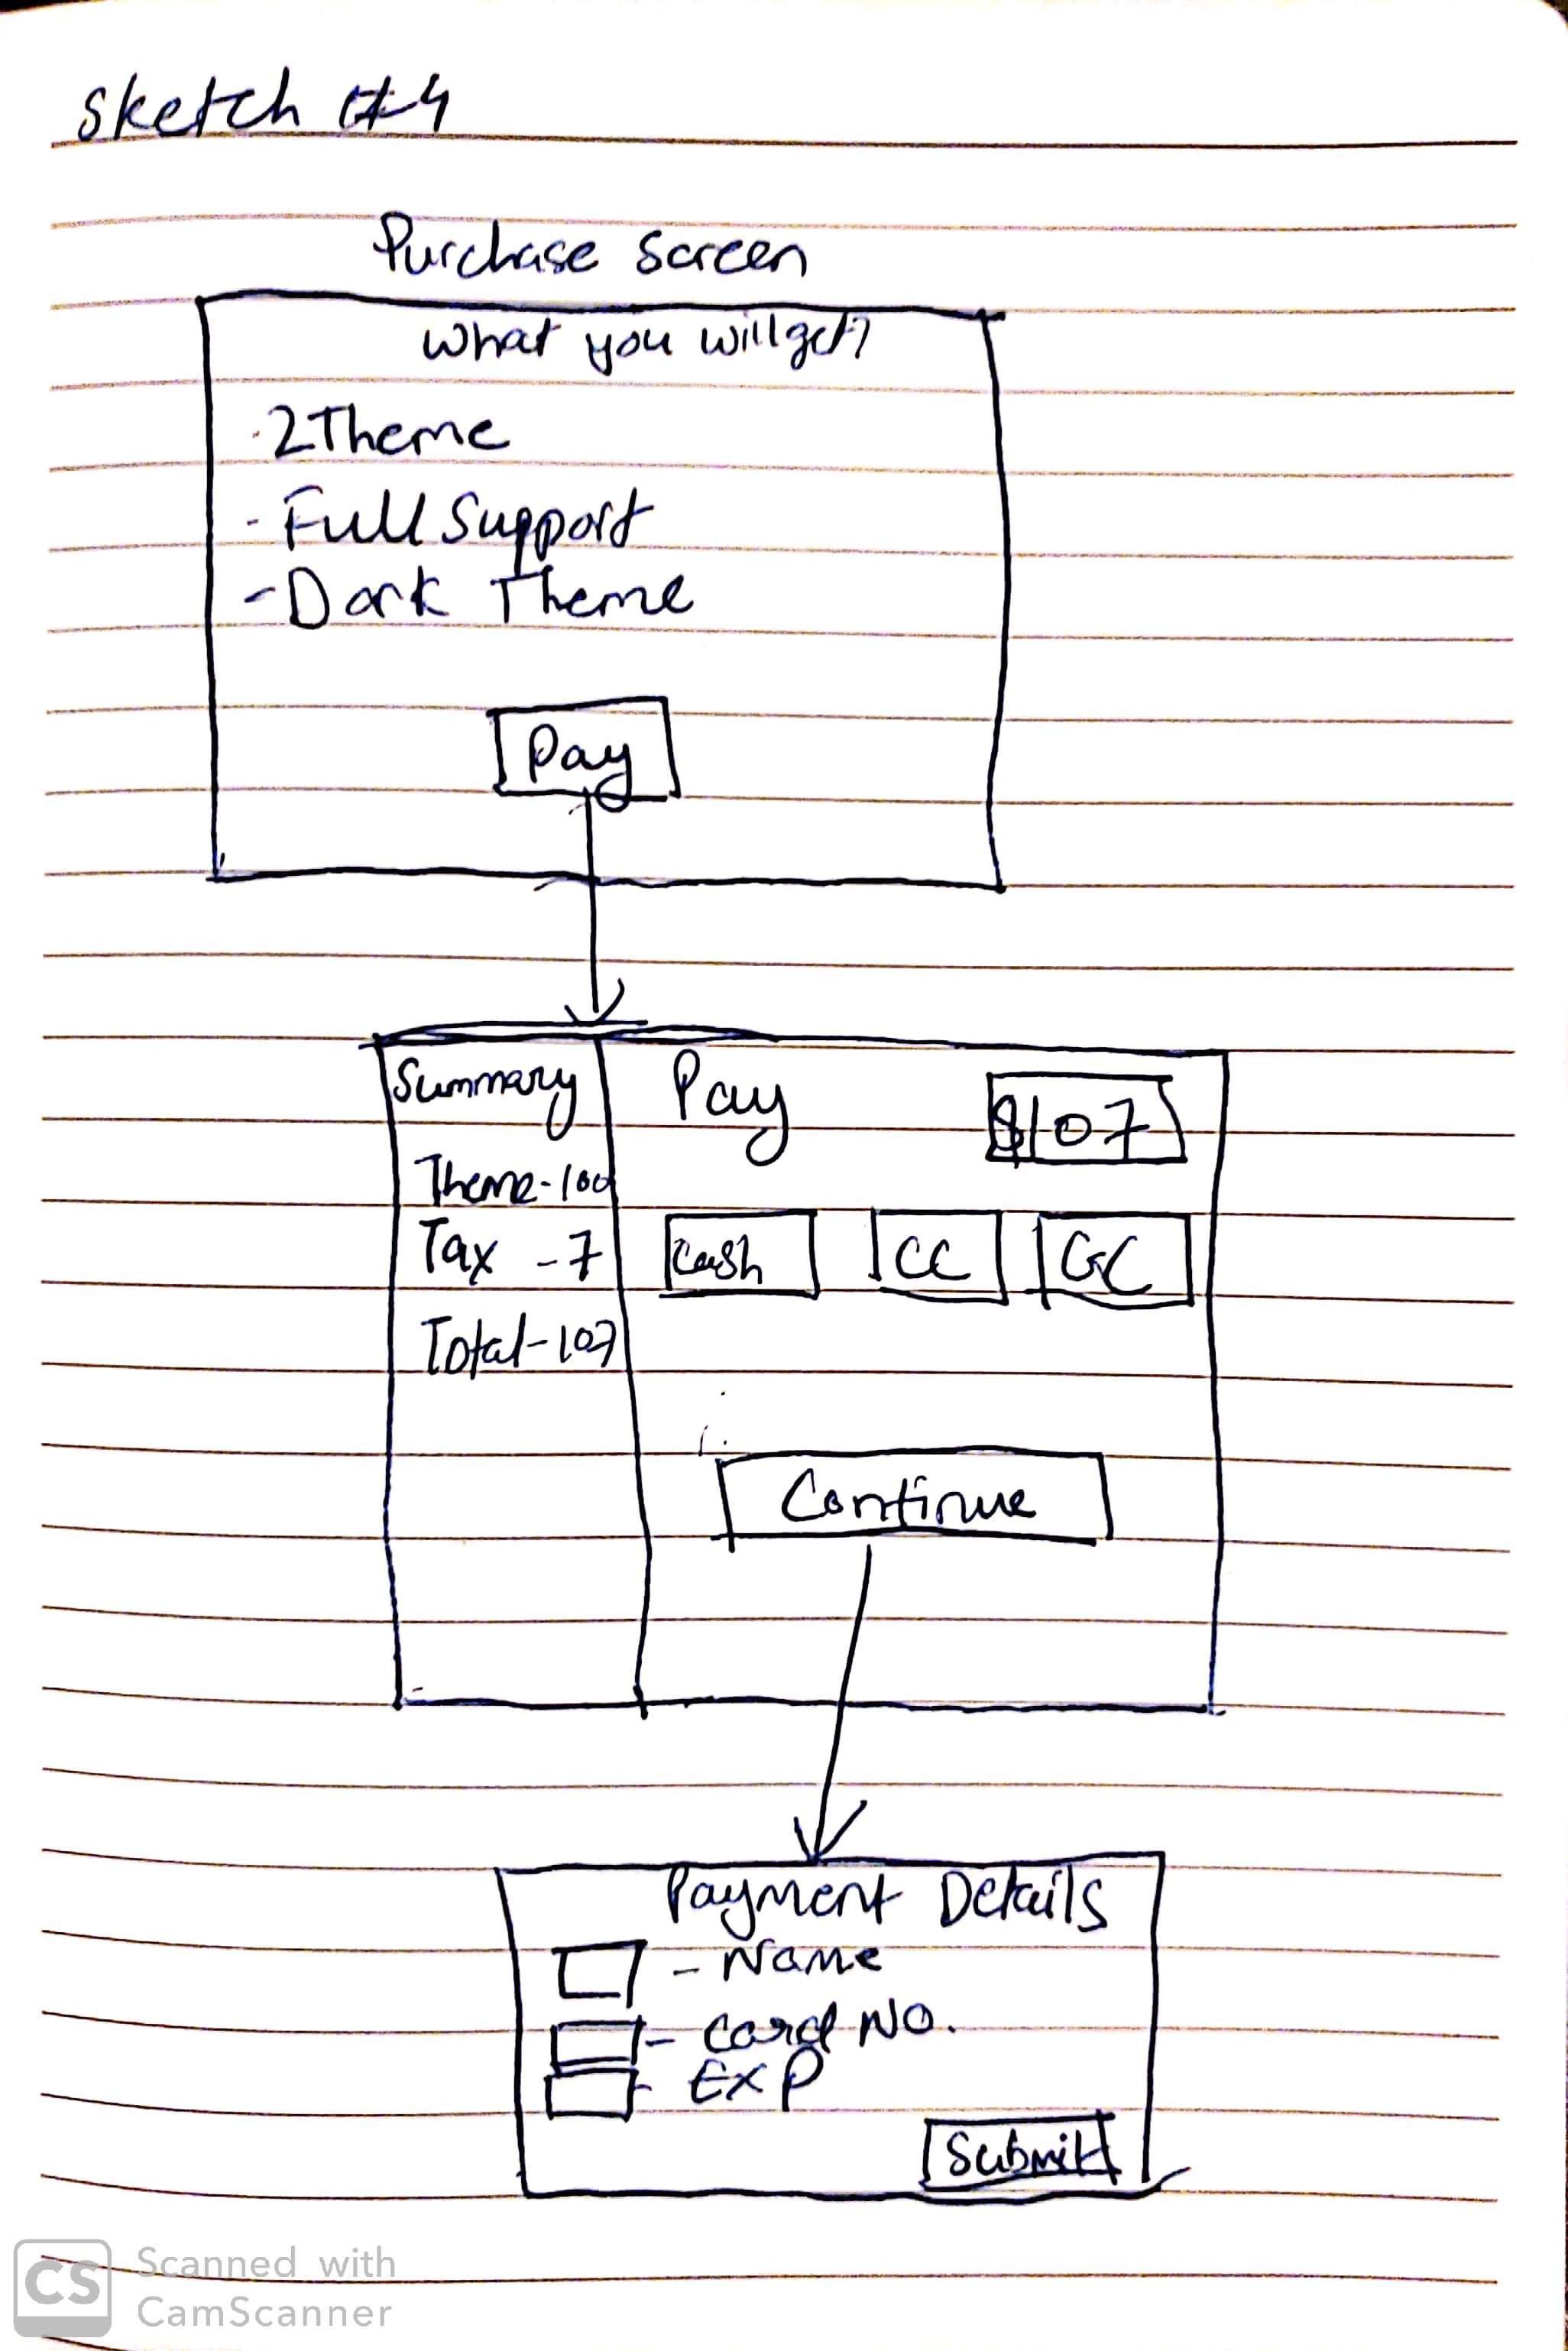 Sketch #4
Purchase Screen
What you will get?
- 2 Theme
- Full Support
- Dark Theme
Pay
Summary
Theme - 100
Tax - 7
Total - 107
Pay
$107
Cash
CC
GC
Continue
Payment Details
- Name
- Card No.
- EXP
Submit
CS
Scanned with
CamScanner